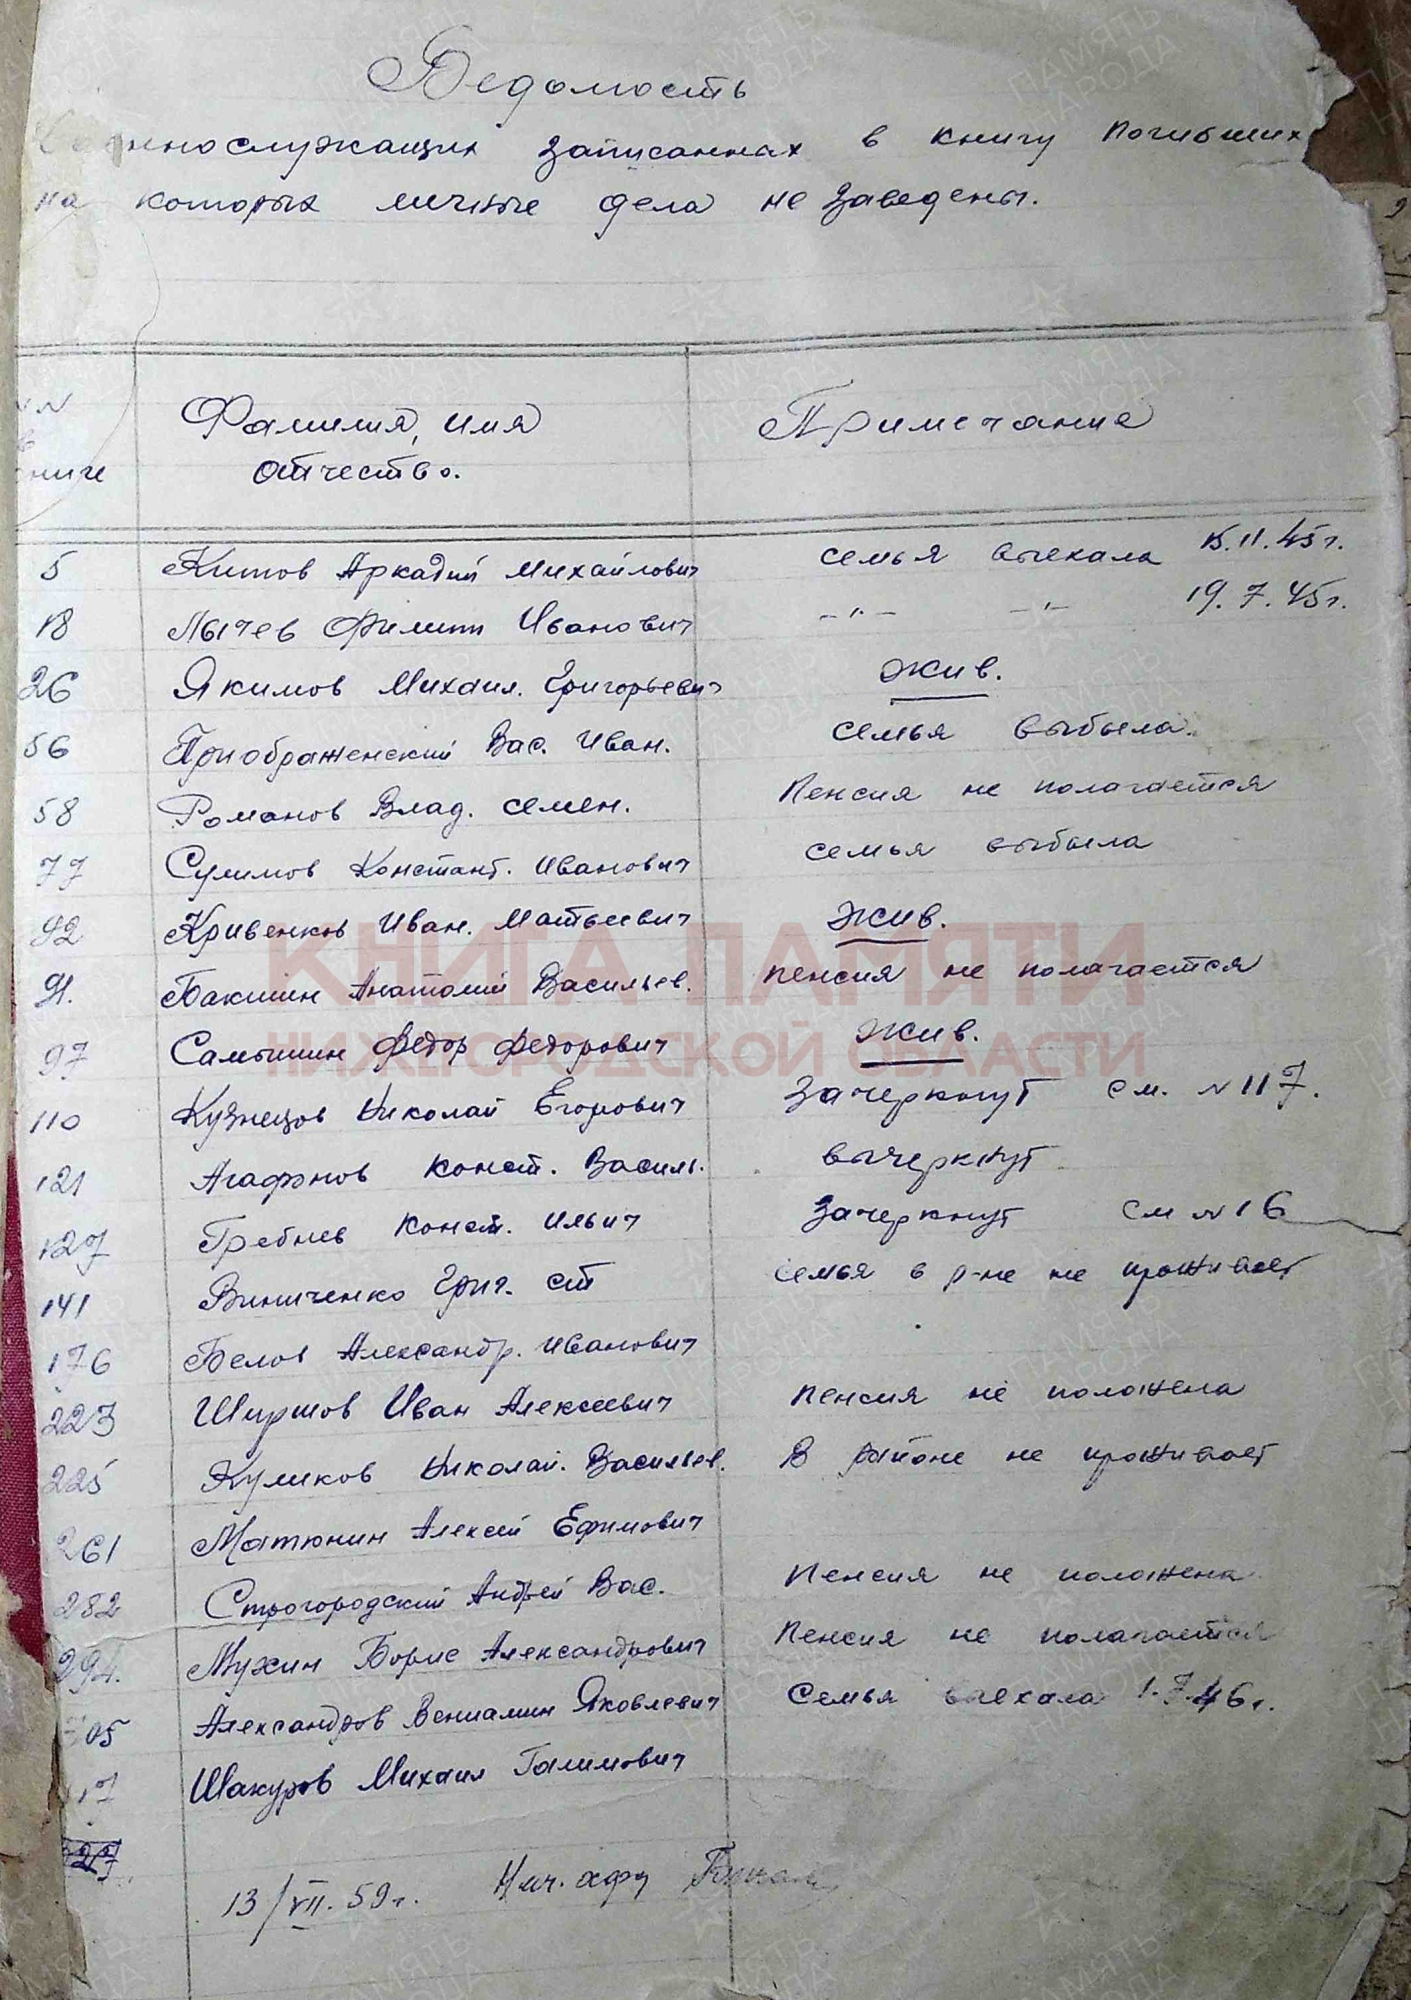 Ведомость
военнослужащих записанных в книгу погибших
на которых личные дела не заведены.
книге
Фамилия, имя
отчество.
Примечание
5 Китов Аркадий Михайлович семья выехала 15.11.45г.
18 Лычев Филипп Иванович -"- -"- 19.7.45г.
26 Якимов Михаил. Григорьевич Жив.
56 Приображенский Вас. Иван. семья выбыла.
58 Романов Влад. Семен. Пенсия не полагается
77 Сулимов Констант. Иванович семья выбыла
92 Кривенков Иван. Матвеевич Жив.
91. Бакшин Анатолий Васильев. пенсия не полагается
97 Самышин Федор Федорович Жив.
110 Кузнецов Николай Егорович Зачеркнут см. №117.
121 Агафонов Конст. Василь. вычеркнут
127 Гребнев Конст. Ильич Зачеркнут см №16
141 Виниченко Григ. ст семья в р-не не проживает
176 Белов Александр. Иванович
223 Ширшов Иван Алексеевич пенсия не положена
225 Куликов Николай. Васильев. В районе не проживает
261 Матюнин Алексей Ефимович
282 Строгородский Андрей Вас. Пенсия не положена
294. Мухин Борис Александрович Пенсия не полагается
305 Александров Вениамин Яковлевич Семья выехала 1.7.46г.
Шакуров Михаил Галимович
13/VII.59г. Нач. ахфу
КНИГА ПАМЯТИ
НИЖЕГОРОДСКОЙ ОБЛАСТИ
ПАМЯТЬ НАРОДА